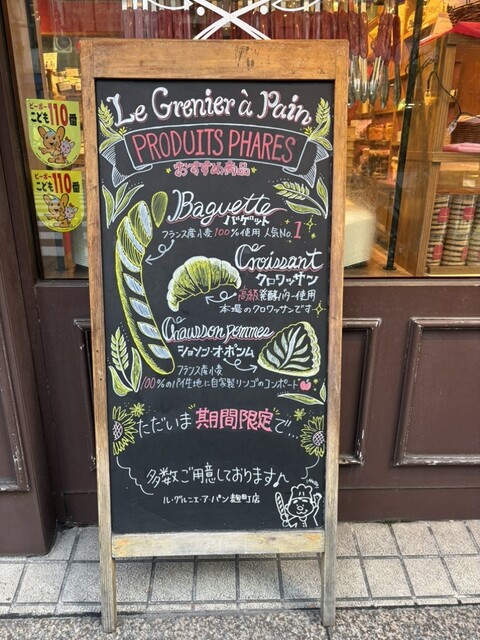 Le Grenier à Pain
PRODUITS PHARES
おすすめ商品
Baguette
バゲット
フランス産小麦100%使用 人気No.1
Croissant
クロワッサン
高級発酵バター使用
本場のクロワッサンです
Chausson pommes
ショソン・オ・ポンム
フランス産小麦
100%のパイ生地に自家製リンゴのコンポート
ただいま期間限定で…
多数ご用意しております♪
ル・グルニエ・ア・パン 麹町店
ピーポー110番
こども110番
ピーポー110番
こども110番